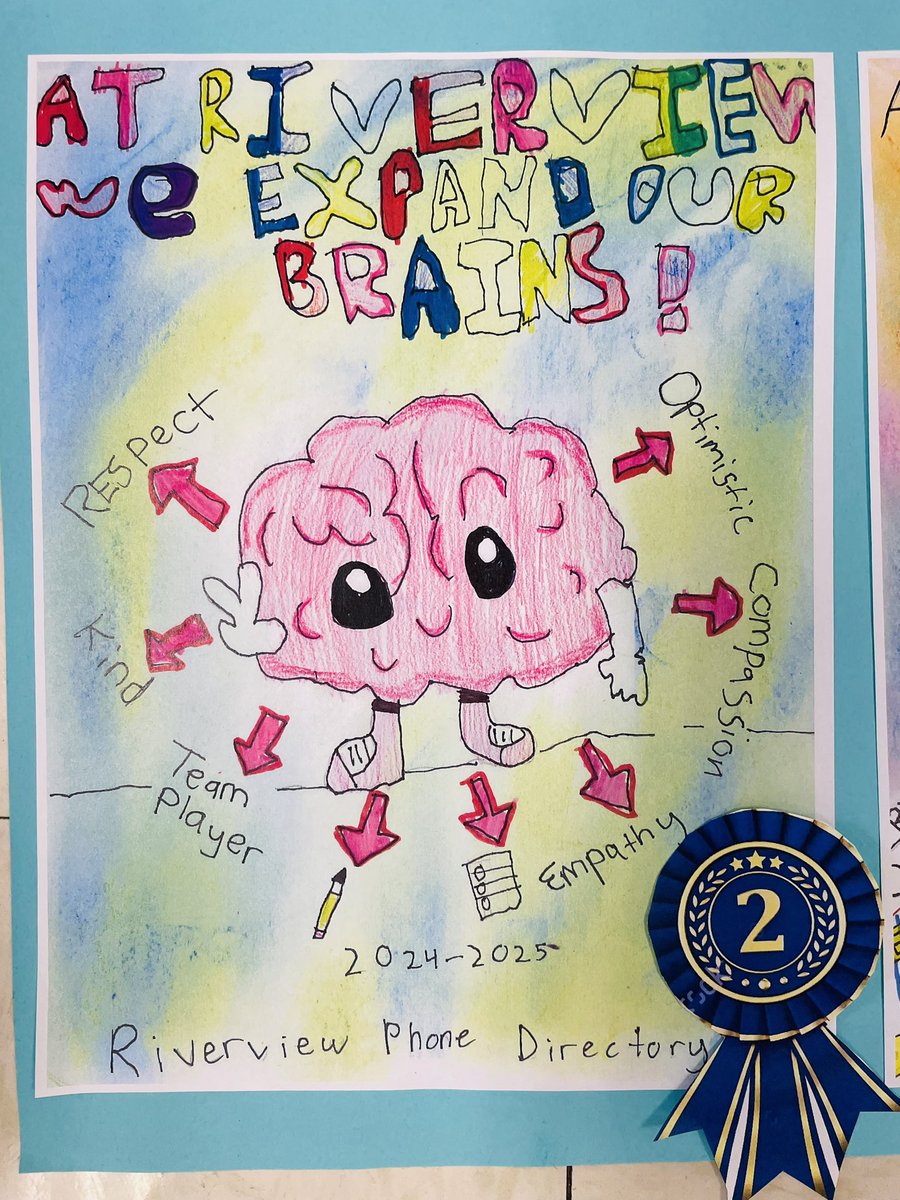 AT RIVERVIEW
We EXPAND OUR
BRAINS!
RESpect
Optimistic
Kind
Compassion
Team
Player
Empathy
2
2024-2025
Riverview Phone Directory